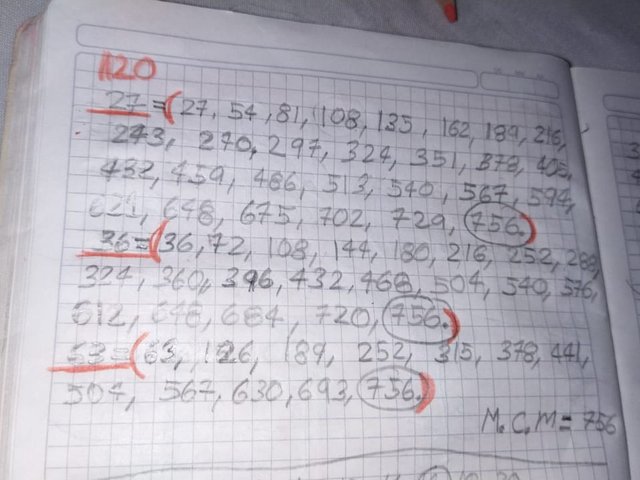 120
27=(27, 54, 81, 108, 135, 162, 189, 216,
243, 270, 297, 324, 351, 378, 405,
432, 459, 486, 513, 540, 567, 594,
621, 648, 675, 702, 729, 756.)
36=(36, 72, 108, 144, 180, 216, 252, 288,
324, 360, 396, 432, 468, 504, 540, 576,
612, 648, 684, 720, 756.)
63=(63, 126, 189, 252, 315, 378, 441,
504, 567, 630, 693, 756.)
M.C.M = 756